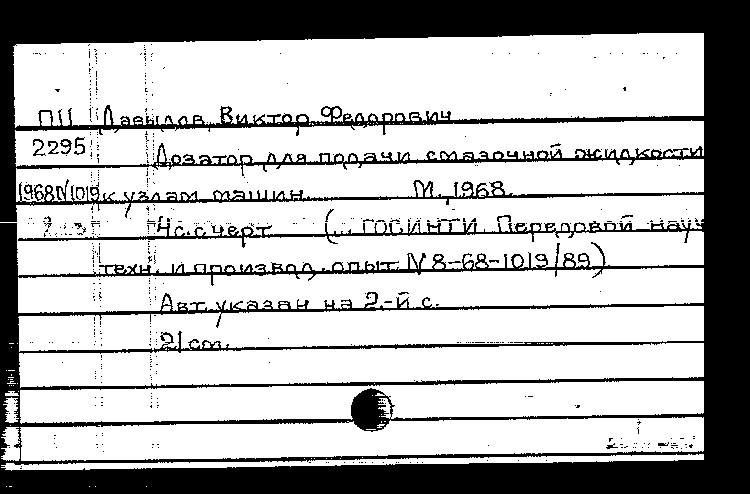 ПЦ Давыдов, Виктор Федорович
2295 Дозатор для подачи смазочной жидкости
1968 N 1019 к узлам машин. М., 1968.
4 с. с черт. (... ГОСИНТИ. Передовой науч
техн. и производ. опыт. N 8-68-1019/89)
Авт. указан на 2-й с.
21 см.